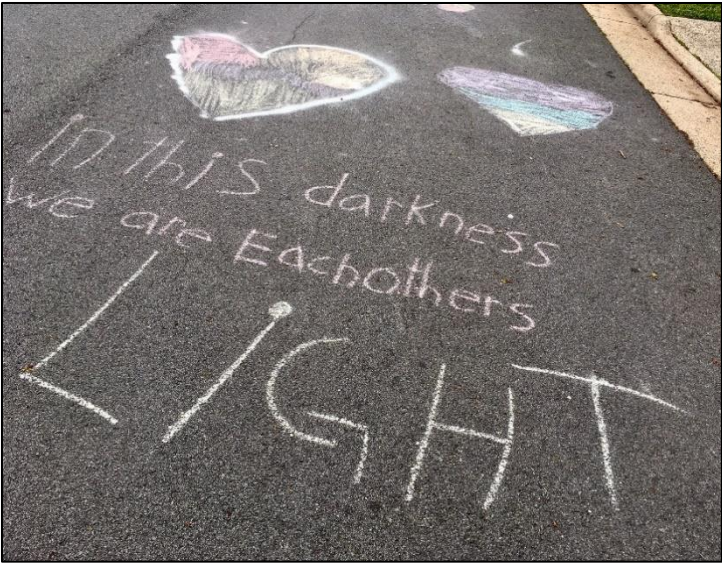 in this darkness
we are Eachothers
LIGHT